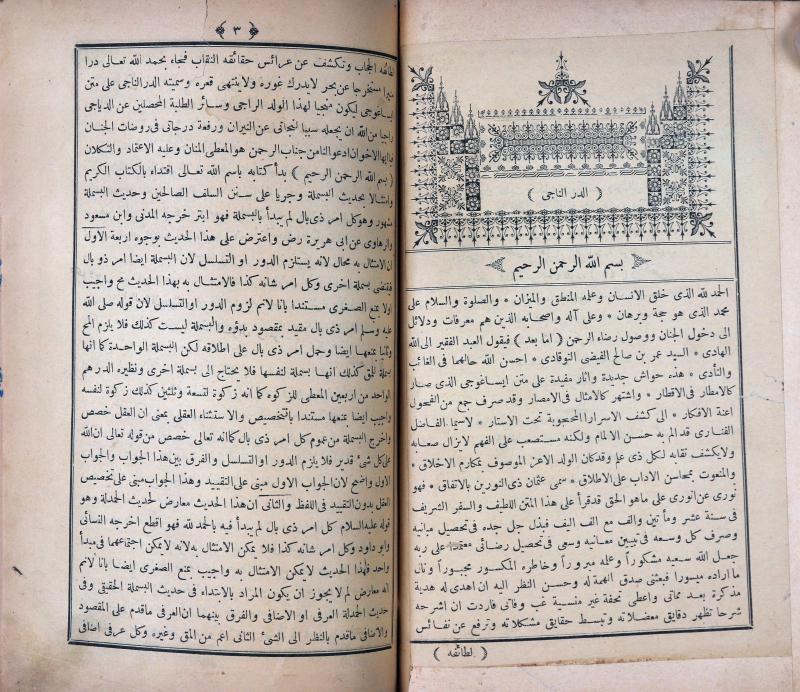 ( الدر الناجى )
بسم الله الرحمن الرحيم
الحمد لله الذى خلق الانسان وعلمه المنطق والميزان * والصلوة والسلام على
محمد الذى هو حجة وبرهان * وعلى آله واصحابه الذين هم معرفات ودلائل
الى دخول الجنان ووصول رضاء الرحمن ( اما بعد ) فيقول العبد الفقير الى الله
الهادى * السيد عمر بن صالح الفيضى التوقادى * احسن الله حالهما فى الغائب
والنأدى * هذه حواش جديدة واثار مفيدة على متن ايساغوجى الذى صار
كالامطار فى الاقطار * واشتهر كالامثال فى الامصار وقد صرف جمع من الفحول
اعنة الافكار * الى كشف الاسرار المحجوبة تحت الاستار * لاسيما الفاضل
الفنارى قد الم به حسن الالمام ولكنه مستصعب على الفهم لايزال صعابه
ولايكشف نقابه لكل ذى علم وقدكان الولد الاعز الموصوف بمكارم الاخلاق *
والمنعوت بمحاسن الاداب على الاطلاق * سمى عثمان ذى النورين بالاتفاق * فهو
نورى عن انورى على ماهو الحق قدقرأ على هذا المتن اللطيف والسفر الشريف
فى سنة عشر ومأتين والف مع الف اليف فبذل جل جده فى تحصيل مبانيه
وصرف كل وسعه فى تبيين معانيه وسعى فى تحصيل رضائى على ربه
جعل الله سعيه مشكورا وعمله مبرورا وخاطره المكسور مجبورا ونال
ما اراده ميسورا فبعثنى صدق الهمة له وحسن النظر اليه ان اهدى له هدية
مذكرة بعد مماتى واعطى تحفة غير منسية غب وفاتى فاردت ان اشرحه
شرحا تظهر دقايق معضلاته وتبسط حقايق مشكلاته وترفع عن نفائس
( لطائفه )
٣
لطائفه الحجاب وتكشف عن عرائس حقائقه النقاب فجاء بحمد الله تعالى درا
منيرا مستخرجا عن بحر لايدرك غوره ولاينتهى قعره وسميته الدر الناجى على متن
ايساغوجى ليكون منجيا لهذا الولد الراجى وسائر الطلبة المحصلين عن الدياجى
راجيا من الله ان يجعله سببا لنجاتى عن النيران ورفعة درجاتى فى روضات الجنان
فيا ايها الاخوان ادعوا لنا من جناب الرحمن هو المعطى المنان وعليه الاعتماد والتكلان
( بسم الله الرحمن الرحيم ) بدأ كتابه باسم الله تعالى اقتداء بالكتاب الكريم
وامتثالا بحديث البسملة وجريا على سنن السلف الصالحين وحديث البسملة
مشهور وهو كل امر ذى بال لم يبدأ بالبسملة فهو ابتر خرجه المدنى وابن مسعود
والرهاوى عن ابى هريرة رض واعترض على هذا الحديث بوجوه اربعة الاول
ان الامتثال به محال لانه يستلزم الدور او التسلسل لان البسملة ايضا امر ذو بال
فيقتضى بسملة اخرى وكل امر شانه كذا فالامتثال به بهذا الحديث مح واجيب
اولا بمنع الصغرى مستندا بانا لانم لزوم الدور او التسلسل لان قوله صلى الله
عليه وسلم امر ذى بال مقيد بمقصود بدؤه والبسملة ليست كذلك فلا يلزم المح
وثانيا بمنعها ايضا وحمل امر ذى بال على اطلاقه لكن البسملة الواحدة كما انها
بسملة للحق كذلك انها بسملة لنفسها فلا يحتاج الى بسملة اخرى ونظيره الدرهم
الواحد من اربعين المعطى للزكوة كما انه زكوة لتسعة وثلثين كذلك زكوة لنفسه
واجيب ايضا بمنعها مستندا بالتخصيص والاستثناء العقلى بمعنى ان العقل خصص
واخرج البسملة من عموم كل امر ذى بال كما انه تعالى خصص من قوله تعالى ان الله
على كل شئ قدير فلا يلزم الدور او التسلسل والفرق بين هذا الجواب والجواب
الاول واضح لان الجواب الاول مبنى على التقييد وهذا الجواب مبنى على تخصيص
العقل بدون التقييد فى اللفظ والثانى ان هذا الحديث معارض لحديث الحمدلة وهو
قوله عليه السلام كل امر ذى بال لم يبدأ فيه بالحمد لله فهو اقطع اخرجه النسائى
وابو داود وكل امر شانه كذا فلا يمكن الامتثال به لانه لايمكن اجتماعهما فى مبدأ
واحد فلهذا الحديث لايمكن الامتثال به واجيب بمنع الصغرى ايضا بانا لانم
انه معارض لم لايجوز ان يكون المراد بالابتداء فى حديث البسملة الحقيقى وفى
حديث الحمدلة العرفى او الاضافى والفرق بينهما ان العرفى ماقدم على المقصود
والاضافى ماقدم بالنظر الى الشئ الثانى اعم من المق وغيره وكل عرفى اضافى